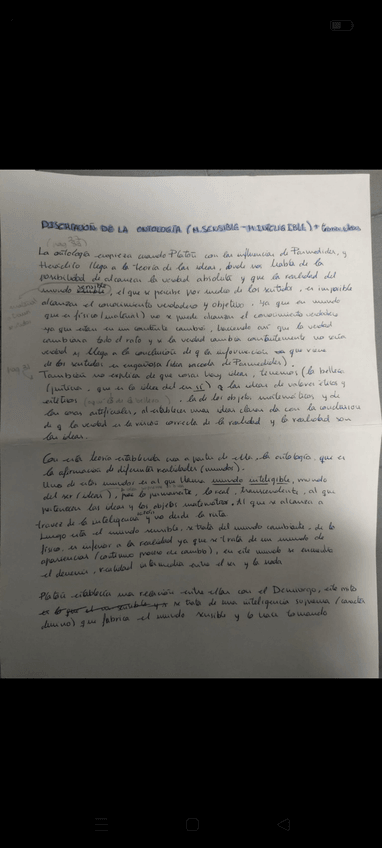 DISERTACIÓN DE LA ONTOLOGÍA (M.SENSIBLE - M.INTELIGIBLE) +
La ontología empieza cuando Platón con las influencias de Parménides, y
Heráclito llega a la teoría de las ideas, donde nos habla de la
posibilidad de alcanzar la verdad absoluta y que la realidad del
mundo sensible, el que se percibe por medio de los sentidos, es imposible
alcanzar el conocimiento verdadero y objetivo, ya que en mundo
que es físico (material) no se puede alcanzar el conocimiento verdadero
ya que están en un constante cambio, haciendo así que la verdad
cambiaría todo el rato y si la verdad cambia constantemente no sería
verdad y llega a la conclusión de q la información que viene
de los sentidos es engañosa (idea sacada de Parménides).
También nos explica de que cosas hay ideas, tenemos (la belleza
(justicia, que es la idea del en sí) q las ideas de valores éticos y
estéticos, la de los objetos matemáticos, y de
las cosas artificiales, al establecer unas ideas claras da con la conclusión
de q la verdad es la visión correcta de la realidad y la realidad son
las ideas.
Con esta teoría establecida nace a partir de ella, la ontología, que es
la afirmación de diferentes realidades (mundos).
Uno de estos mundos es al que llama mundo inteligible, mundo
del ser (ideas), lo permanente, lo real, transcendente, al que
pertenecen las ideas y los objetos matemáticos. Al que se alcanza a
través de la inteligencia y no desde la
Luego está el mundo sensible, se trata del mundo cambiante, de lo
físico, es inferior a la realidad ya que se trata de un mundo de
apariencias (continuo proceso de cambio), en este mundo se encuentra
el devenir, realidad intermedia entre el ser y la nada
Platón establecía una relación entre ellas con el Demiurgo, este
se trata de una inteligencia suprema
divino) que fabrica el mundo sensible y lo hace tomando